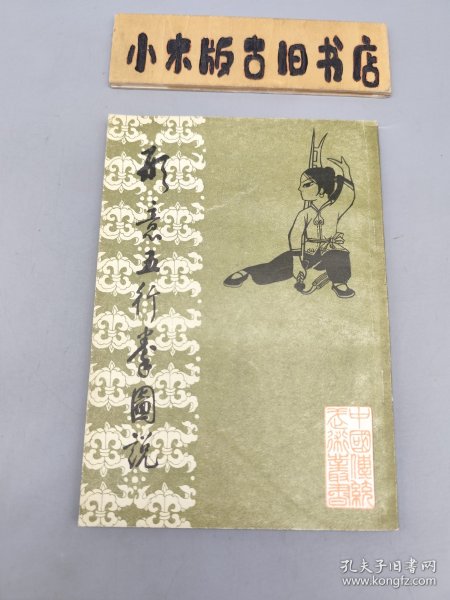 小木版古旧书店
形意五行拳圖說
中國傳統
武術叢書
孔夫子旧书网
www.kongfz.com